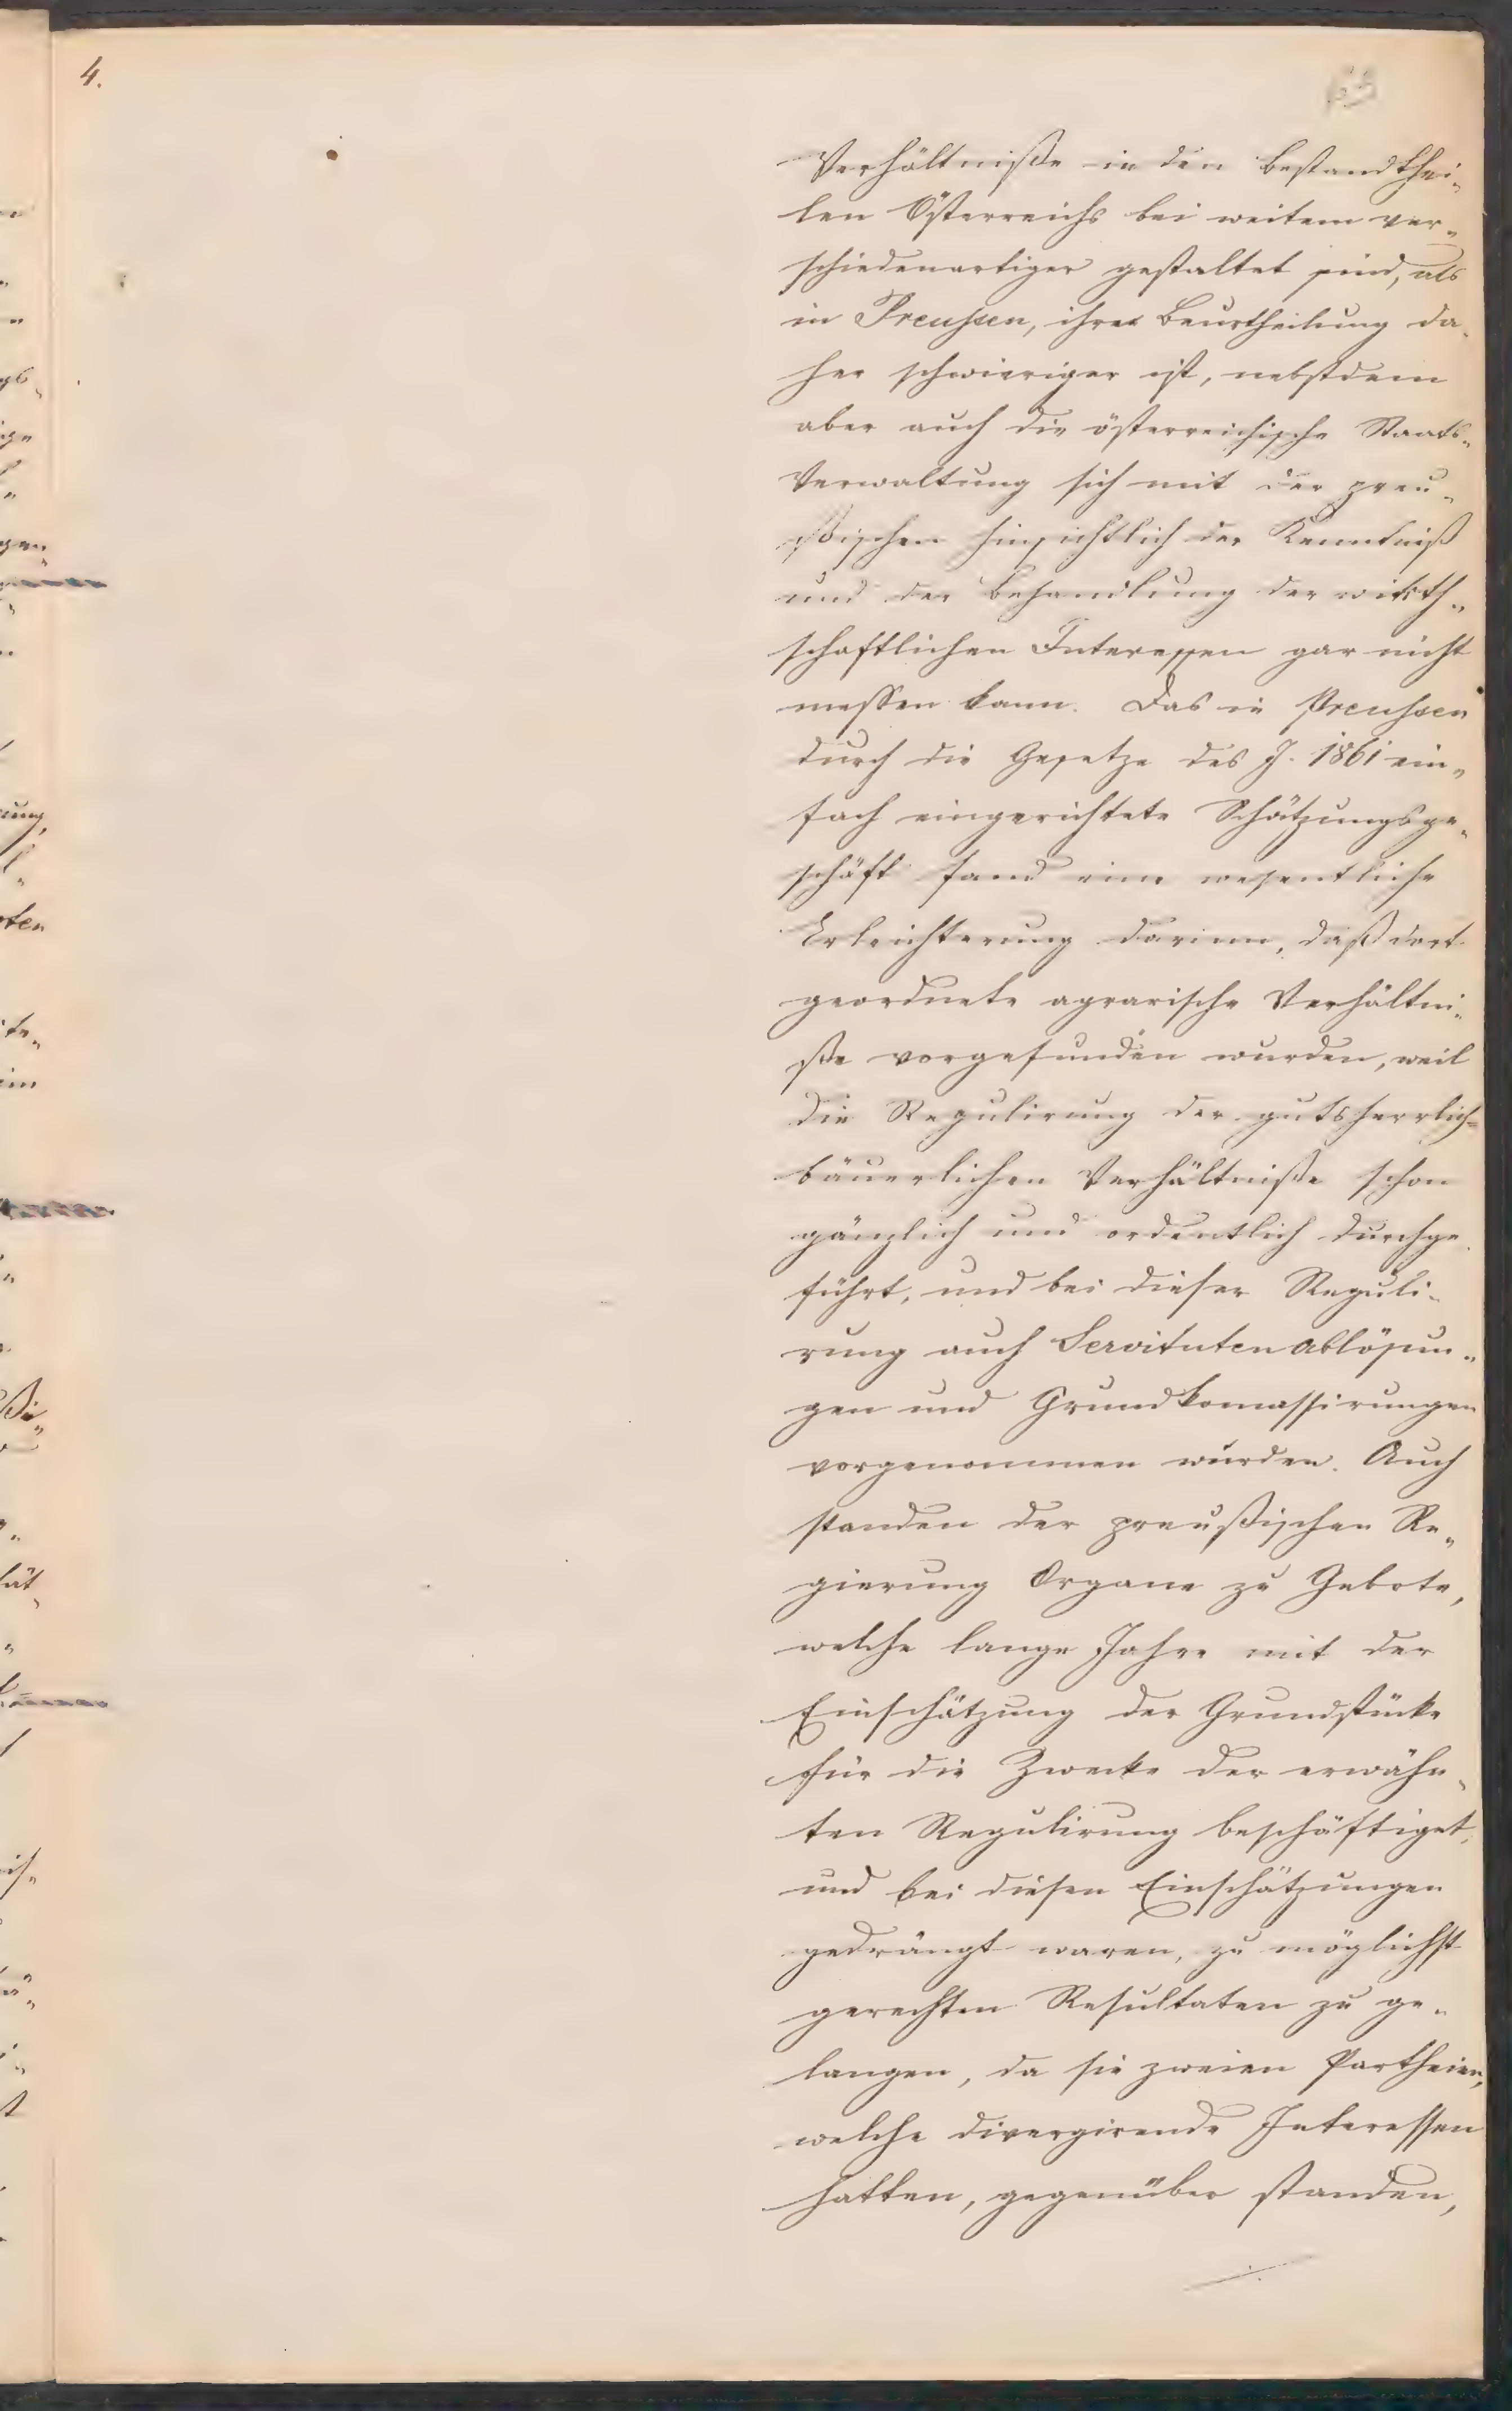 4.
63
Verhältniße in den Bestandthei„
len Österreichs bei weitem ver„
schiedenartiger gestaltet sind, als
in Preussen, ihre Beurtheilung da„
her schwieriger ist, nebstdem
aber auch die österreichische Staats„
Verwaltung sich mit der preu„
ßischen hinsichtlich der Kenntniß
und der Behandlung der wirth„
schaftlichen Interessen gar nicht
messen kann. Das in Preussen
durch die Gesetze des J. 1861 ein„
fach eingerichtete Schätzungsge„
schäft fand eine wesentliche
Erleichterung darinn, daß dort
geordnete agrarische Verhältni„
ße vorgefunden wurden, weil
die Regulirung der gutsherrlich=
bäuerlichen Verhältniße schon
gänzlich und ordentlich durchge„
führt, und bei dieser Reguli„
rung auch Servitutenablösun„
gen und Grundkomassirungen
vorgenommen wurden. Auch
standen der preußischen Re„
gierung Organe zu Gebote,
welche lange Jahre mit der
Einschätzung der Grundstücke
für die Zwecke der erwähn„
ten Regulirung beschäftiget,
und bei diesen Einschätzungen
gedrängt waren, zu möglichst
gerechten Resultaten zu ge„
langen, da sie zweien Partheien,
welche divergirende Interessen
hatten, gegenüber standen,